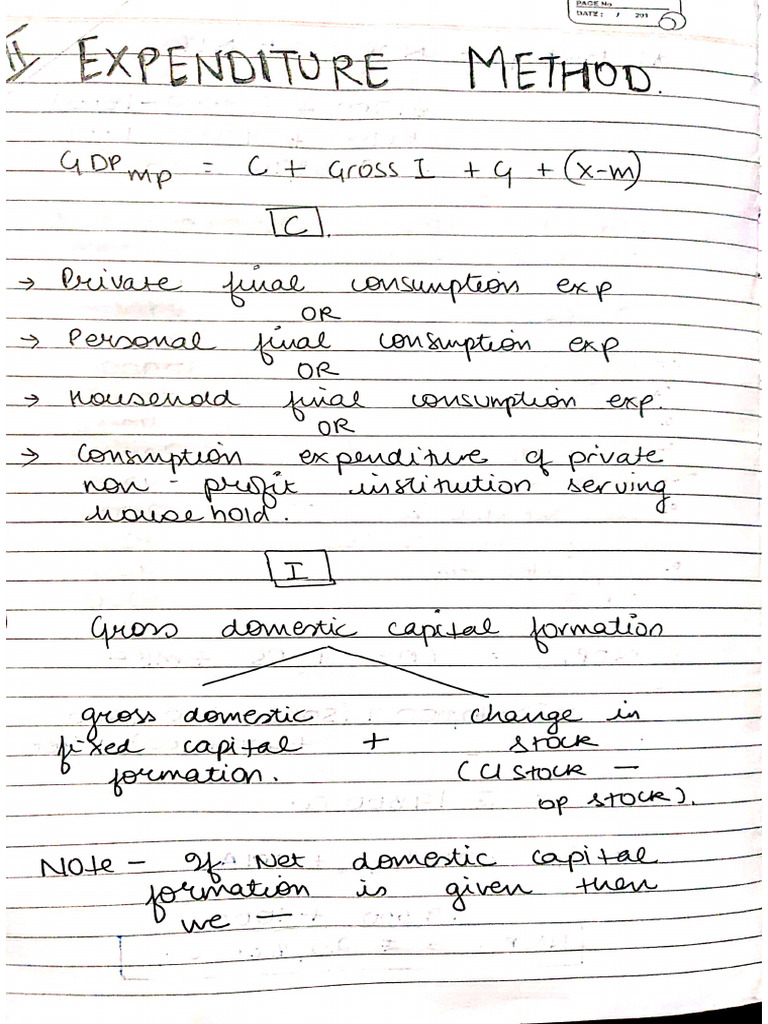 PAGE No
DATE: / 201 6
II EXPENDITURE METHOD.
GDP mp = C + Gross I + G + (x-m)
C.
→ Private final consumption exp
OR
→ Personal final consumption exp
OR
→ Household final consumption exp.
OR
→ Consmption expenditure of private
non - profit institution serving
household.
I
Gross domestic capital formation
gross domestic change in
fixed capital + stock
formation. (Cl stock —
op stock).
Note - If Net domestic capital
formation is given then
we —